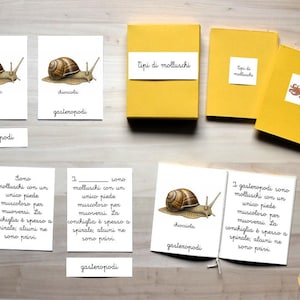 chiocciola
gasteropodi
tipi di molluschi
tipi di
molluschi
Sono
molluschi con un
unico piede
muscoloso per
muoversi. La
conchiglia è spesso a
spirale, alcuni ne
sono privi.
I ______ sono
molluschi con un
unico piede
muscoloso per
muoversi. La
conchiglia è spesso a
spirale, alcuni ne
sono privi.
gasteropodi
chiocciola
gasteropodi
I gasteropodi sono
molluschi con un
unico piede
muscoloso per
muoversi. La
conchiglia è spesso a
spirale, alcuni ne
sono privi.